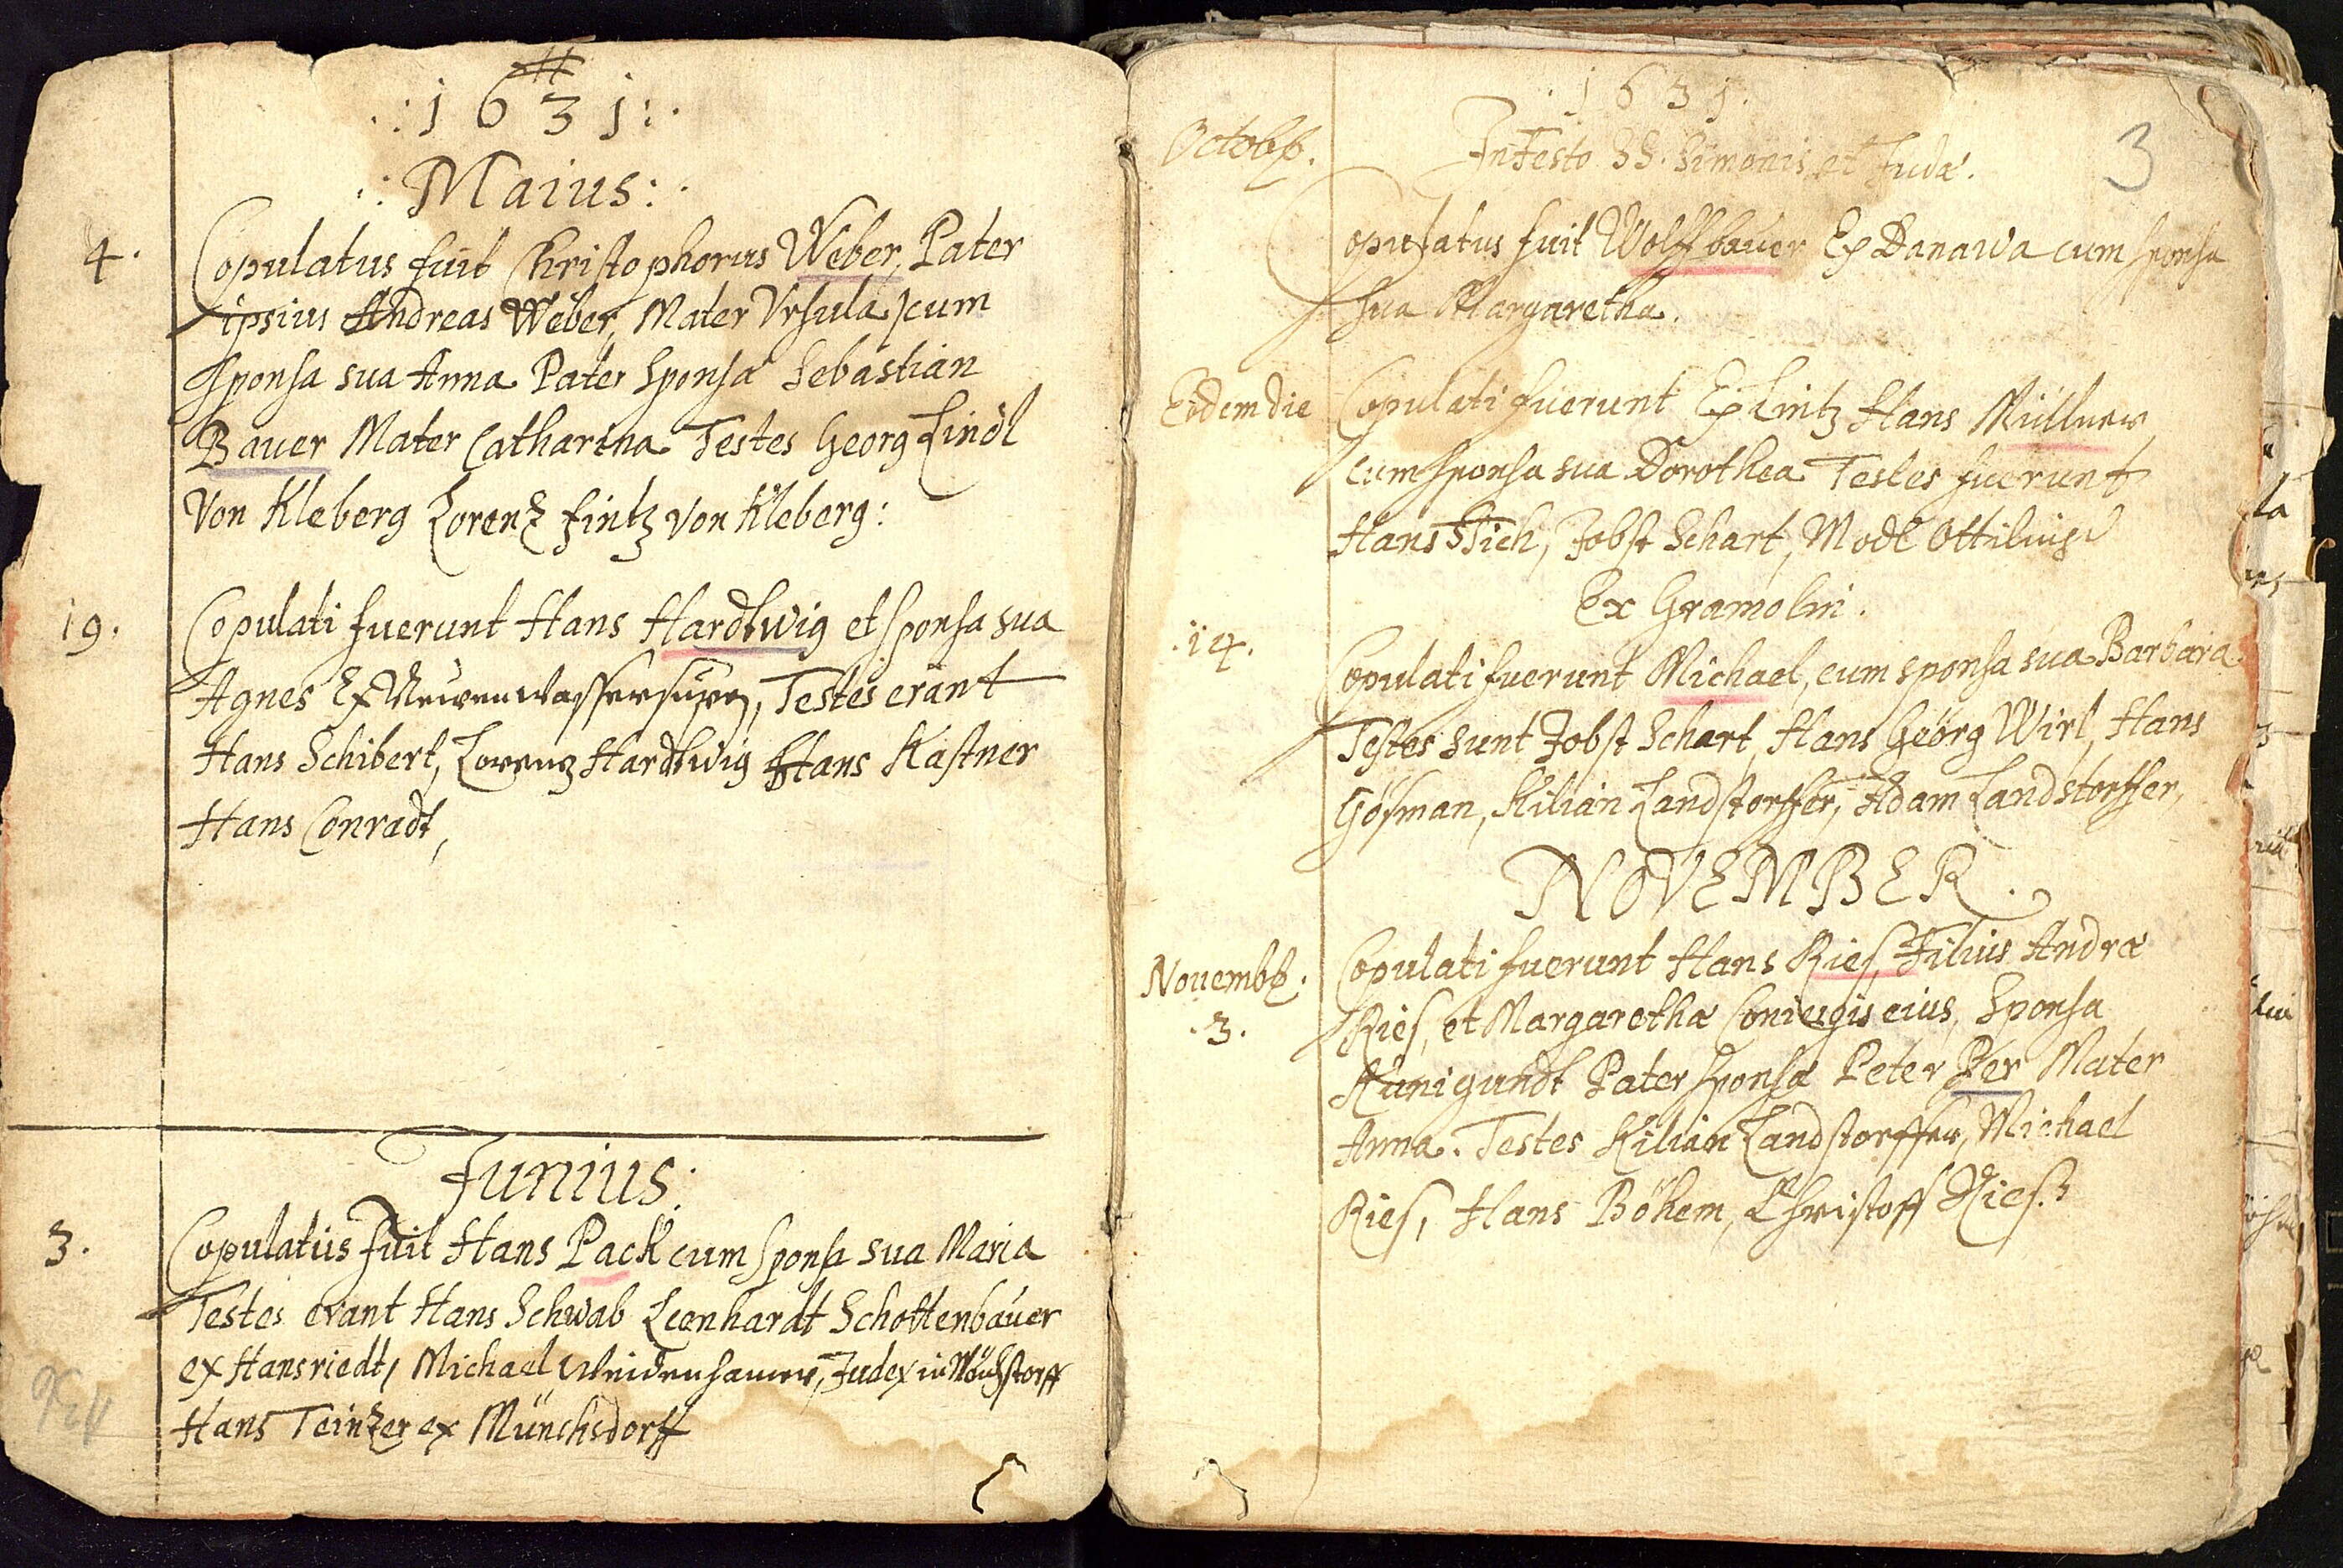 .:1631:.
.:Maius:.
4. Copulatus fuit Christophorus Weber, Pater
ipsius Andreas Weber, Mater Vrsula) cum
sponsa sua Anna Pater Sponsæ Sebastian
Bauer Mater Catharina Testes Georg Lindl
Von Kleberg Lorenz fintz von Kleberg:
19. Copulati fuerunt Hans Hardtwig et sponsa sua
Agnes Ex Testes erant
Hans Schibert, Lorenz Hardtwig Hans Kastner
Hans Conradt,
Junius:
3. Copulatus fuit Hans Pack cum sponsa sua Maria
Testes erant Hans Schwab Leonhardt Schottenbauer
ex Hansriedt, Michael Judex in
Hans Teinzer ex Münchsdorff
.1631.
3
Octobr. In Festo SS. Simonis et Judæ.
Copulatus fuit Wolff bauer Ex Danawa cum sponsa
sua Margaretha.
Eodem die Copulati fuerunt Ex Lintz Hans Müllner,
cum sponsa sua Dorothea Testes fuerunt
Hans Jobst Schart, Modl
Ex
.14. Copulati fuerunt Michael, cum sponsa sua Barbara
Testes sunt Jobst Schart, Hans Geörg Wirl, Hans
Gösman, Kilian Landstorffer, Adam Landstorffer,
NOVEMBER.
Nouembr. Copulati fuerunt Hans Ries, Filius Andræ
.3. Ries, et Margarethæ Coniugis eius, Sponsa
Kunigundt Pater sponsæ Peter Mater
Anna. Testes Kilian Landstorffer, Michael
Ries, Hans Böhem, Christoff Ries.